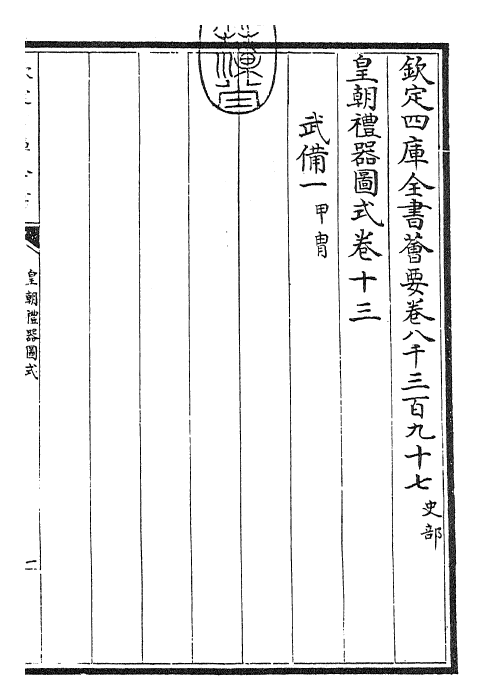 欽定四庫全書薈要卷八千三百九十七 史部
皇朝禮器圖式卷十三
武備一 甲冑
皇朝禮器圖式
一